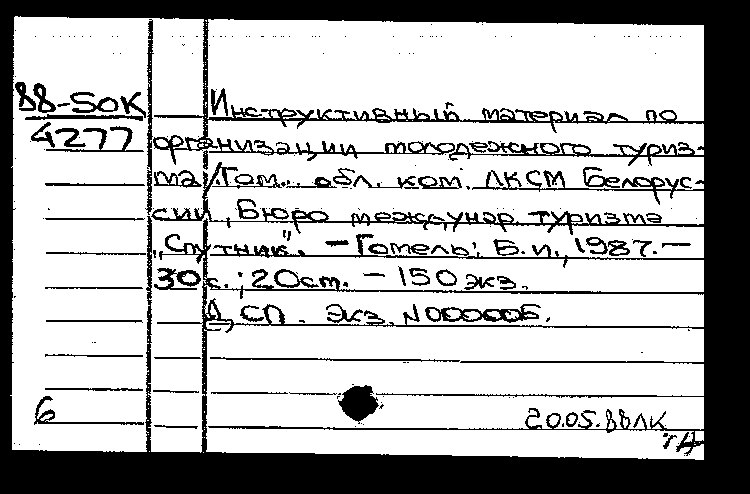 88-SOK
4277
Инструктивный материал по
организации молодежного туриз-
ма/Гом. обл. ком. ЛКСМ Белорус-
сии, Бюро междунар. туризма
„Спутник". - Гомель: Б.и., 1987. -
30 с.; 20 см. - 150 экз.
Д СП. Экз. N000006.
6
20.05.88 ЛК